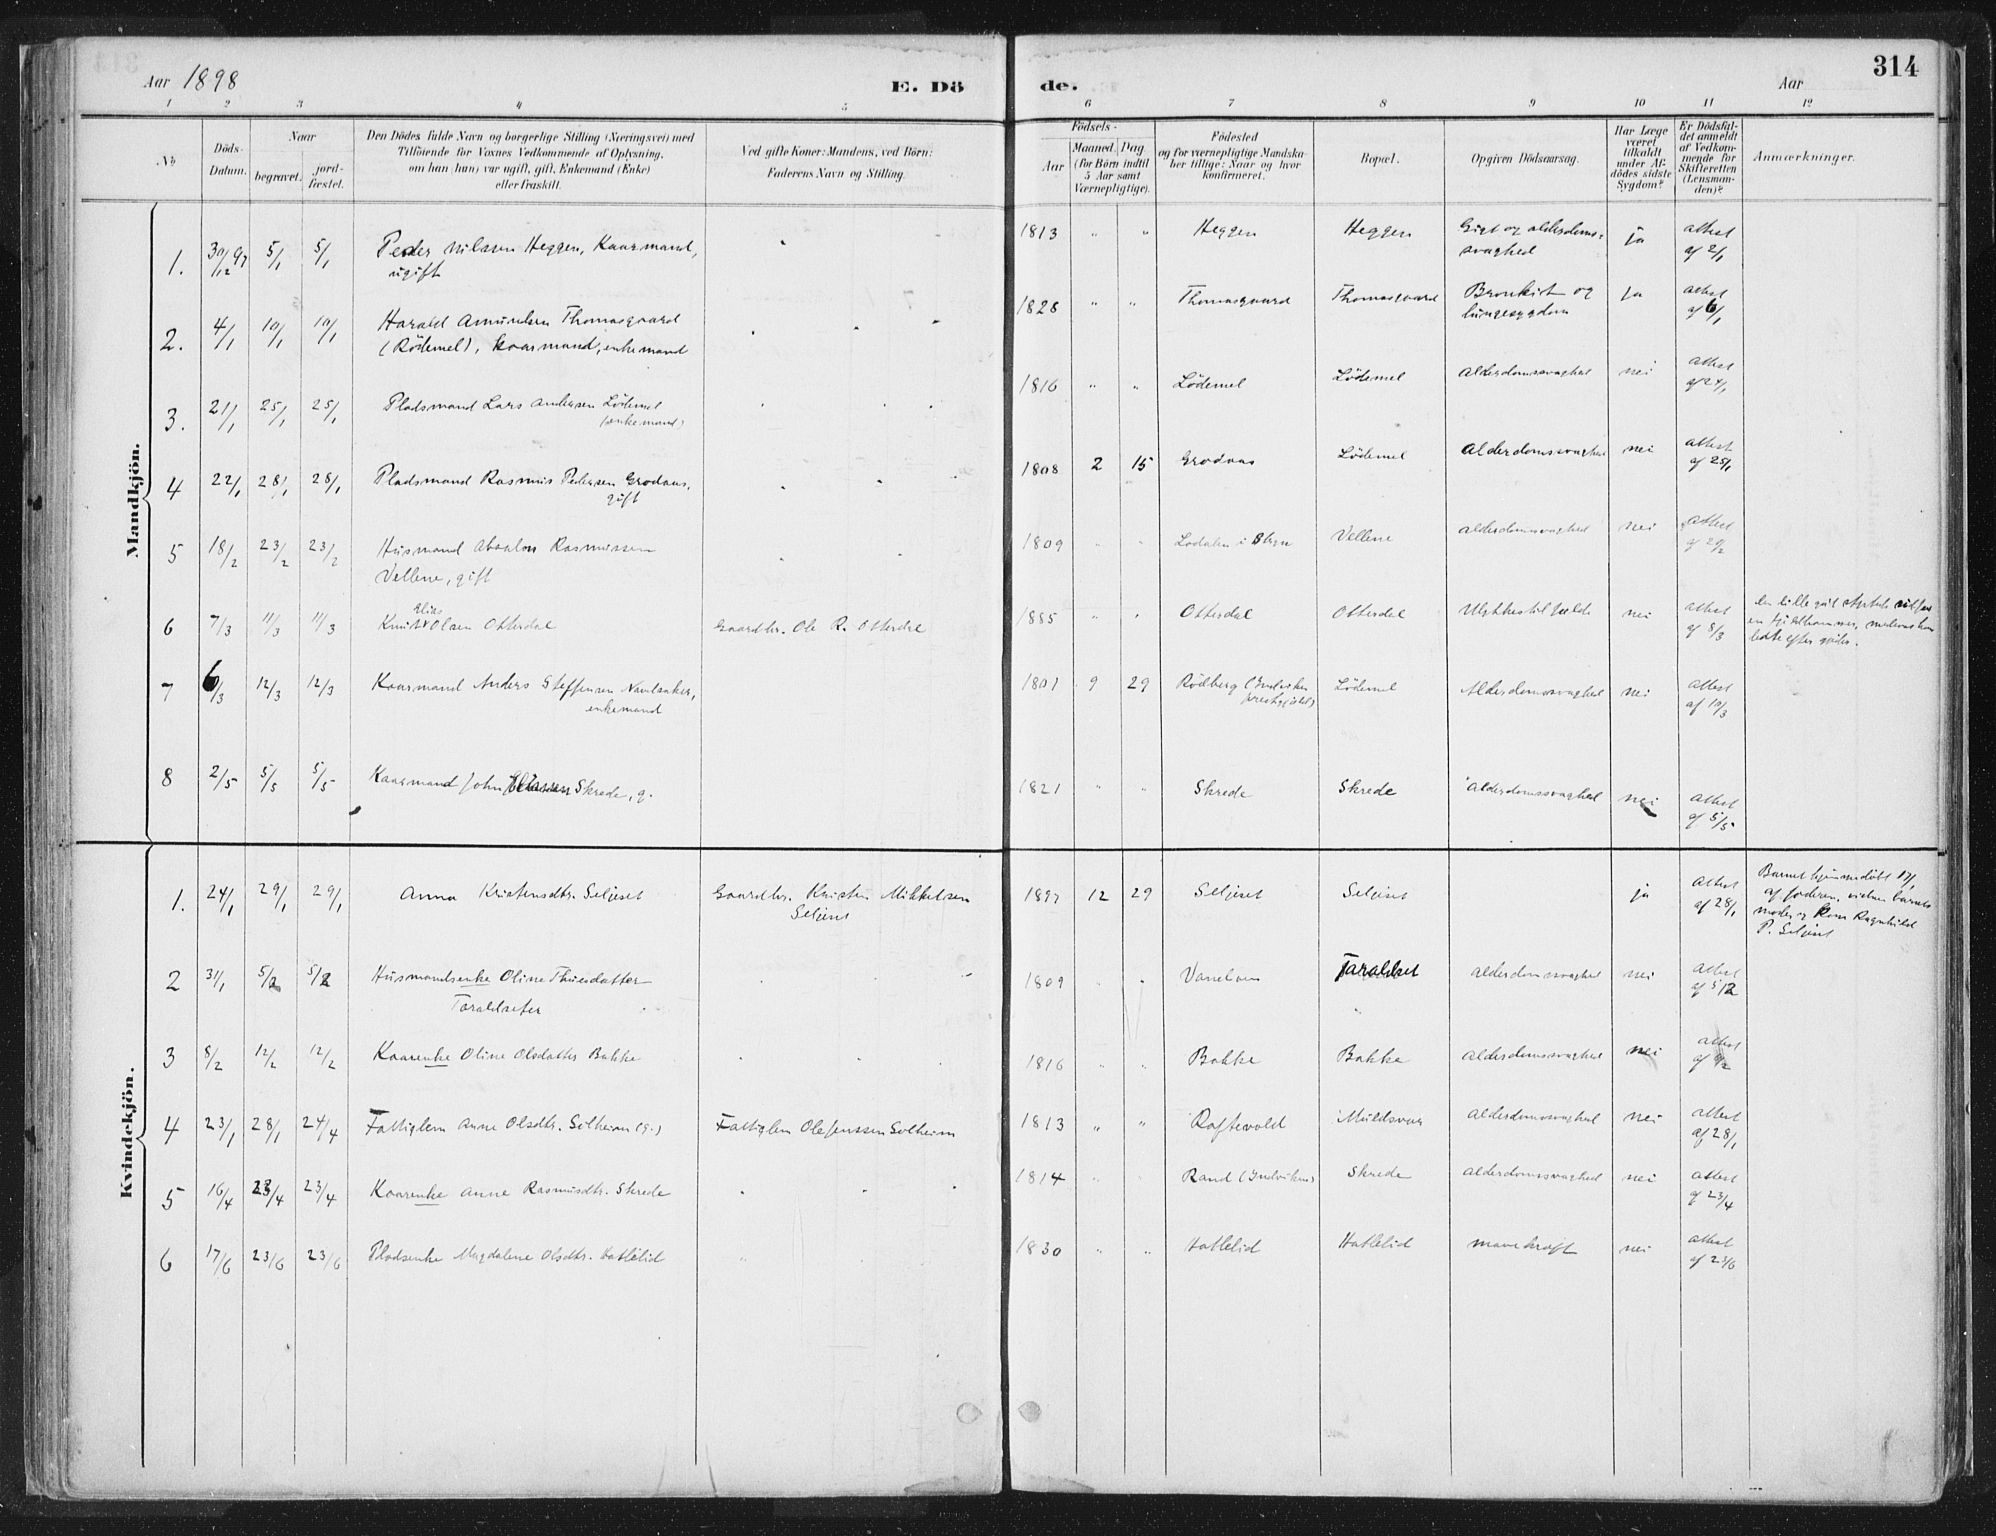 Aar 1898
E. Dö
de.
Aar
314
1 2 3 4 5 6 7 8 9 10 11 12
No
Döds-
Datum.
Naar
begravet.
jord-
fæstet.
Den Dödes fulde Navn og borgerlige Stilling (Næringsvei) med
Tilföiende for Voxnes Vedkommende af Oplysning,
om han (hun) var ugift, gift, Enkemand (Enke)
eller fraskilt.
Ved gifte Koner: Mandens, ved Börn:
Faderens Navn og Stilling.
Födsels-
Aar
Maaned. Dag
(for Börn indtil
5 Aar samt
Værnepligtige).
Födested
og for værnepligtige Mandska-
ber tillige: Naar og hvor
konfirmeret.
Bopæl.
Opgiven Dödsaarsag.
Har Læge
været
tilkaldt
under Af-
dödes sidste
Sygdom?
Er Dödsfal-
det anmeldt
af Vedkom-
mende for
Skifteretten
(Lensman-
den)?
Anmærkninger.
Mandkjön.
1. 30/12 97 5/1 5/1 Peder Nilssen Heggen, Kaarmand,
ugift
1813 " " Heggen Heggen Gigt og alderdoms-
svaghed ja attest
af 2/1
2. 4/1 10/1 10/1 Harald Amundsen Thomasgaard
(Rödemel), Kaarmand, enkemand
1828 " " Thomasgaard Thomasgaard Bronkit og
lungesygdom ja attest
af 6/1
3. 21/1 25/1 25/1 Pladsmand Lars Andersen Lödemel
(enkemand)
1816 " " Lödemel Lödemel Alderdomssvaghed nei attest
af 24/1
4 22/1 28/1 28/1 Pladsmand Rasmus Pedersen Grodaas,
gift
1808 2 15 Grodaas Lödemel Alderdomssvaghed nei attest
af 25/1
5 18/2 23/2 23/2 Husmand Absalon Rasmussen
Vellene, gift
1809 " " Lodalen i Stryn Vellene Alderdomssvaghed nei attest
af 20/2
6 7/3 11/3 11/3 Knut Elias Olsen Otterdal Gaardbr. Ole R. Otterdal
1885 " " Otterdal Otterdal Ulykkestilfælde nei attest
af 8/3
den lille gut styrtede ud for
en fjeldhammer, medens han
ledte efter gjeder.
7 6/3 12/3 12/3 Kaarmand Anders Steffensen Navelsaker,
enkemand
1801 9 29 Rödberg (Indviken
prestegjeld) Lödemel Alderdomssvaghed nei attest
af 10/3
8 2/5 5/5 5/5 Kaarmand John Skrede, g.
1821 " " Skrede Skrede Alderdomssvaghed nei attest
af 5/5
Kvindekjön.
1. 24/1 29/1 29/1 Anna Kristensdtr. Seljeset Gaardbr. Kristen Mikkelsen
Seljeset
1897 12 29 Seljeset Seljeset ja attest
af 28/1
Barnet hjemmedöbt 17/1
af faderen, vidner barnets
moder og Kone Ragnhild
P. Seljeset
2 31/1 5/2 5/2 Husmandsenke Oline Thuesdatter
Taraldseter
1809 " " Vanelven Taraldset Alderdomssvaghed nei attest
af 5/2
3 8/2 12/2 12/2 Kaarenke Oline Olsdatter Bakke
1816 " " Bakke Bakke Alderdomssvaghed nei attest
af 9/2
4 23/1 28/1 24/4 Fattiglem Anne Olsdtr. Solheim (g.) Fattiglem Ole Jenssen Solheim
1813 " " Raftevold Muldsvor Alderdomssvaghed nei attest
af 28/1
5 16/4 23/4 23/4 Kaarenke Anne Rasmusdtr. Skrede
1814 " " Rand (Indviken) Skrede Alderdomssvaghed nei attest
af 23/4
6 17/6 23/6 23/6 Pladsenke Magdalene Olsdtr. Hatlelid
1830 " " Hatlelid Hatlelid mavekræft nei attest
af 23/6